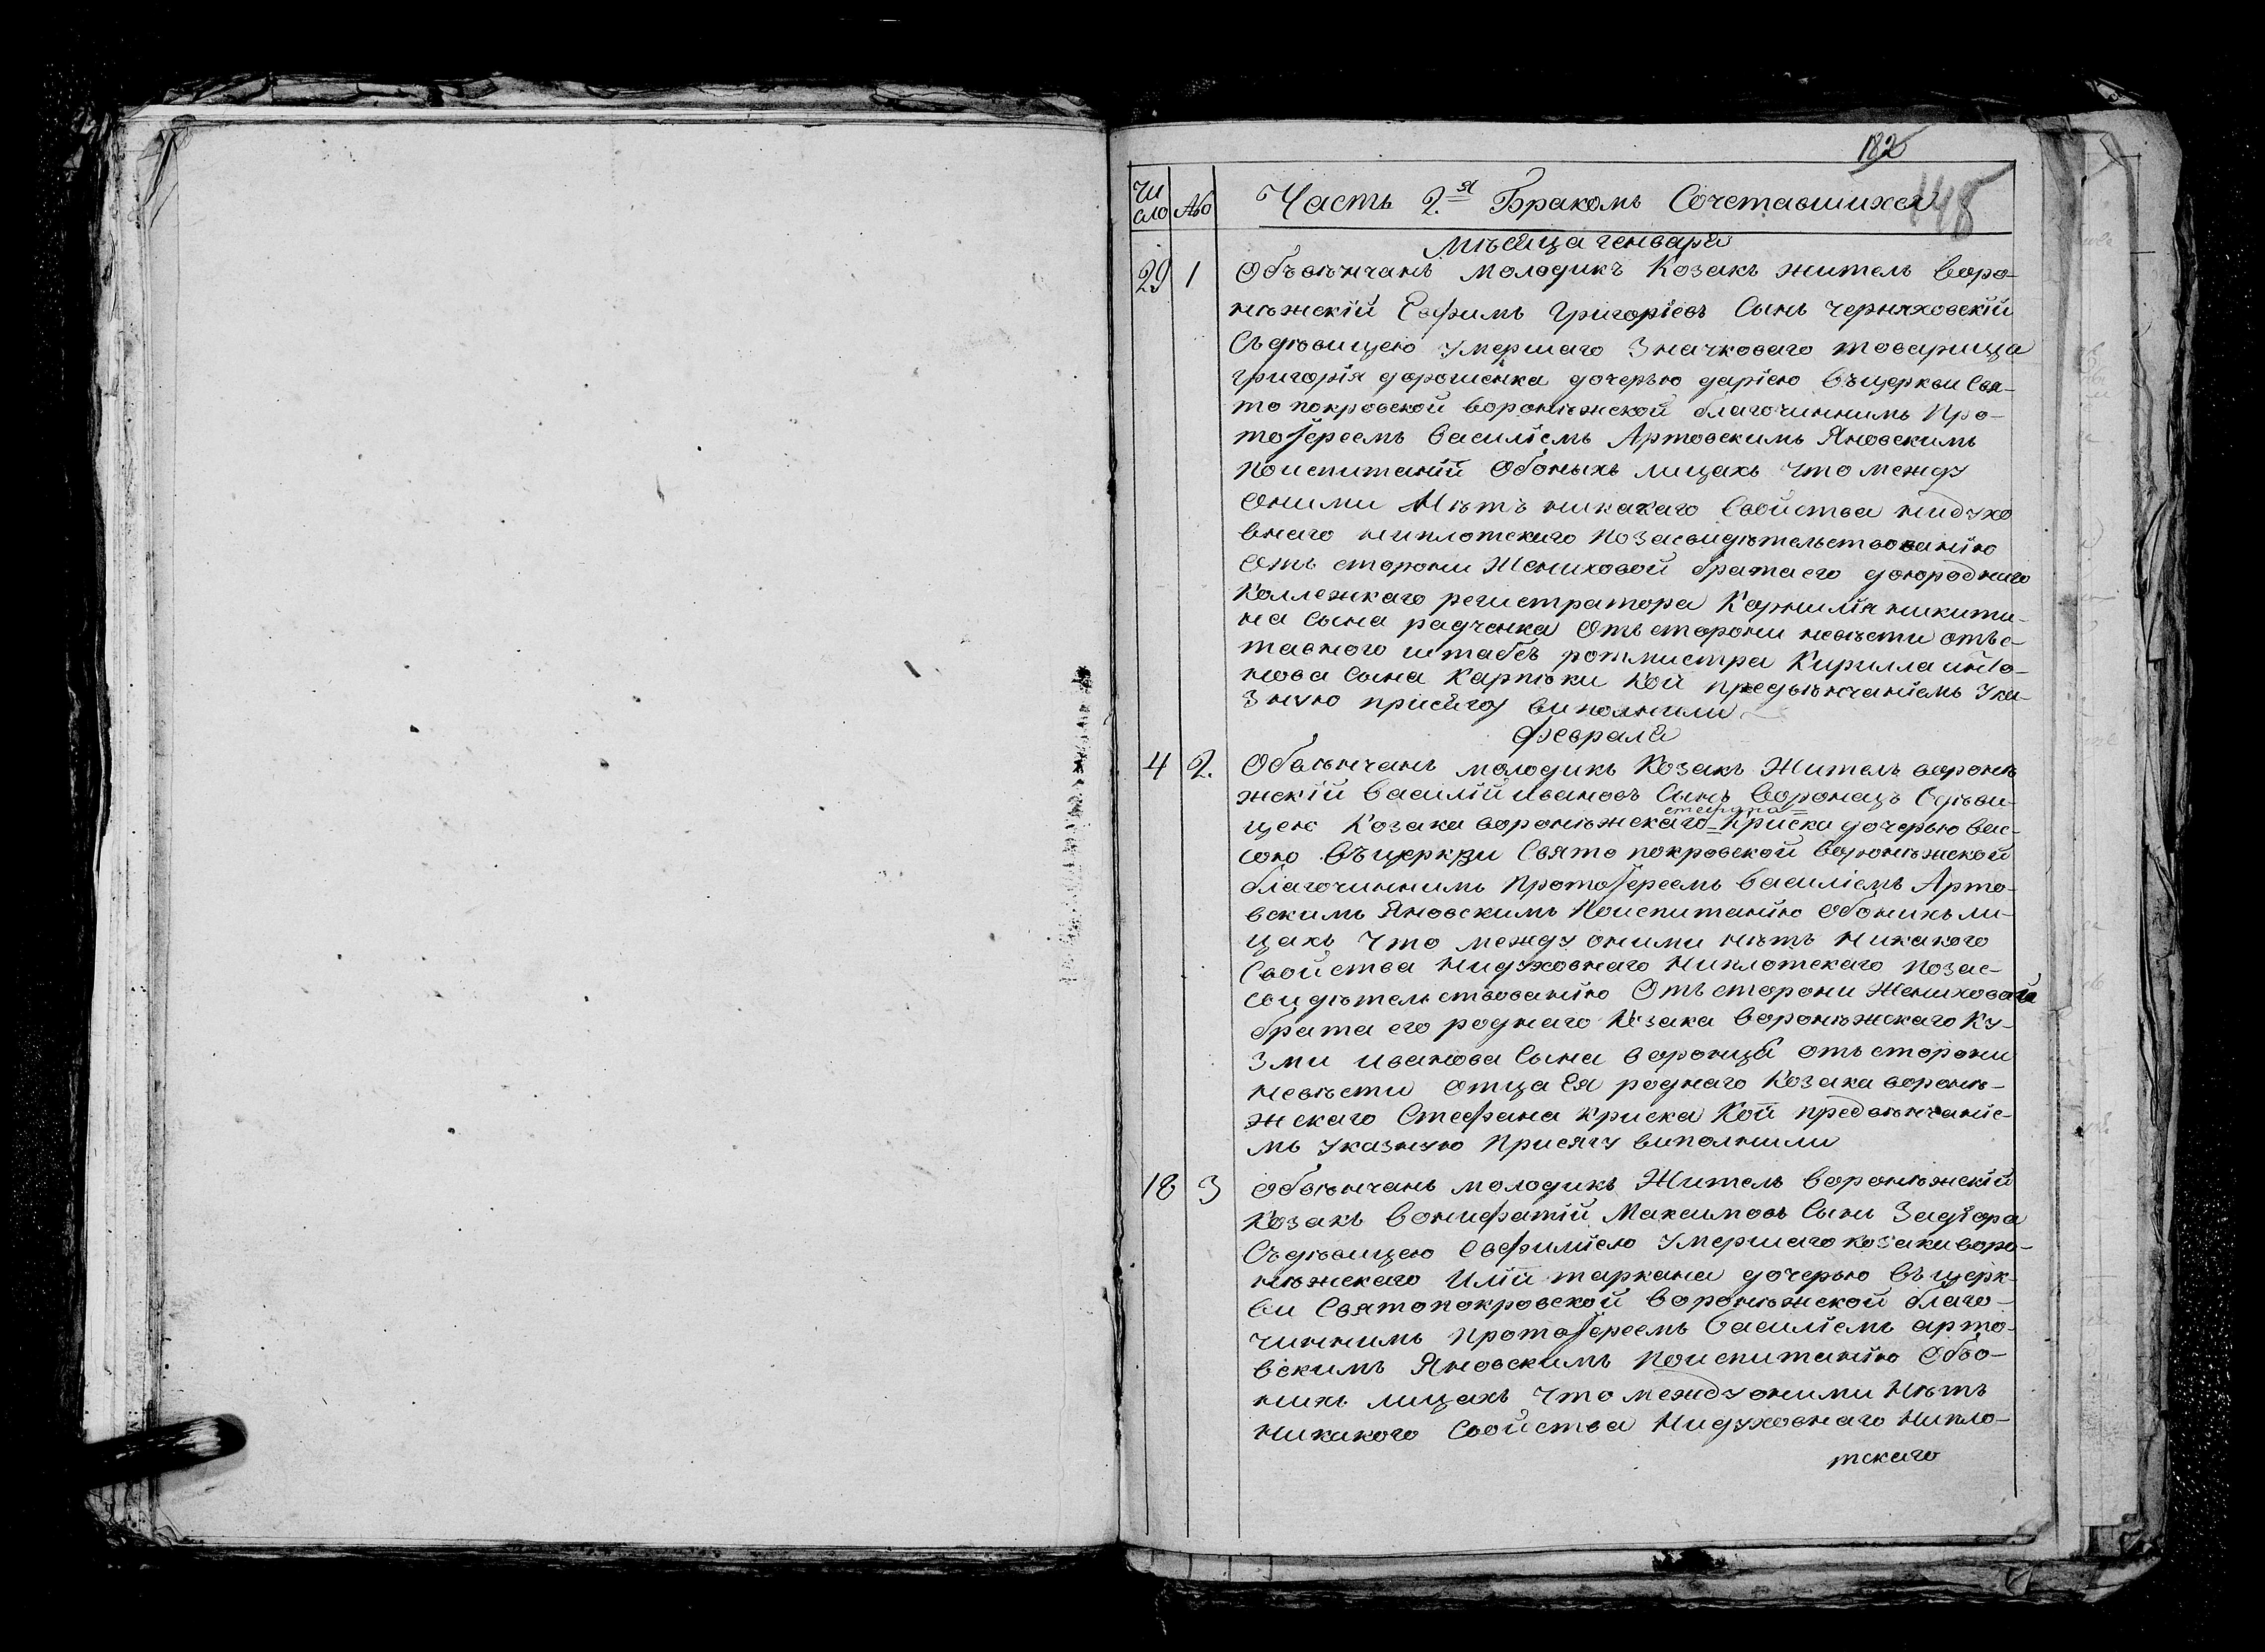 182
148
Чи
сло № Часть 2.я Бракомъ Сочетавшихся
Мѣсяца генваря
29 1 Объвѣнчанъ молодикъ Козакъ житель Воро-
нѣжскій Евфимъ Григоріевъ Сынъ Черняховскій
Съдѣвицею умершаго Значковаго товарища
Григорія дорошенка дочерью даріею Въцеркви Свя-
то покровской воронѣжской благочиннимъ Про-
тоіереемъ Василіемъ Артовскимъ Яновскимъ
Поиспитаніи Обоныхъ лицахъ Что между
Оними Нѣтъ никакаго Свойства нидухо
внаго ниплотскаго Позасвидѣтельствованію
Отъ сторони Жениховой брата его двоюроднаго
Коллежкаго регистратора Карнилія никити-
на Сына радченка Отъ сторони невѣсти отъс-
тавного штабсъ ротмистра Кирилла
нова Сына Карпѣки Кои предвѣнчаніемъ Ука-
зную присягу виполнили
февраля
4 2. Обвѣнчанъ молодикъ Козакъ Житель воронѣ
жскій Василій ивановъ Сынъ Воронецъ Сдѣви-
стефана
цею Козака воронѣжскаго = Криска дочерью Вас-
сою Въцеркви Свято покровской Воронѣжской
благочиннимъ Протоіереемъ Василіемъ Арто-
вскимъ Яновскимъ Поиспитанію Обонихъ ли-
цахъ Что между оними нѣтъ Никакого
Свойства Нидуховнаго Ниплотскаго Позас-
свидѣтельствованію Отъ сторони Жениховай
брата его роднаго Козака Воронѣжскаго Ку-
зми иванова Сына воронца отъ сторони
Невѣсти Отца Ея роднаго Козака воронѣ-
жскаго Стефана Криска Кои предвѣнчаніе-
мъ Указную Присягу виполнили
18 3 Обвѣнчанъ молодикъ Житель Воронѣжскій
Козакъ Вонифатій Максимовъ Сынъ Задіора
Съдѣвицею Евфиміею Умершаго козака воро-
нѣжскаго Иліи таркана дочерью Въ церк-
ви Святопокровской Воронѣжской благо-
чиннимъ Протоіереемъ Василіемъ арто-
вскимъ Яновскимъ Поиспитанію Обьо-
нихъ лицахъ Что между оними Нѣтъ
Никакого Свойства Нидуховнаго Нипло-
тскаго